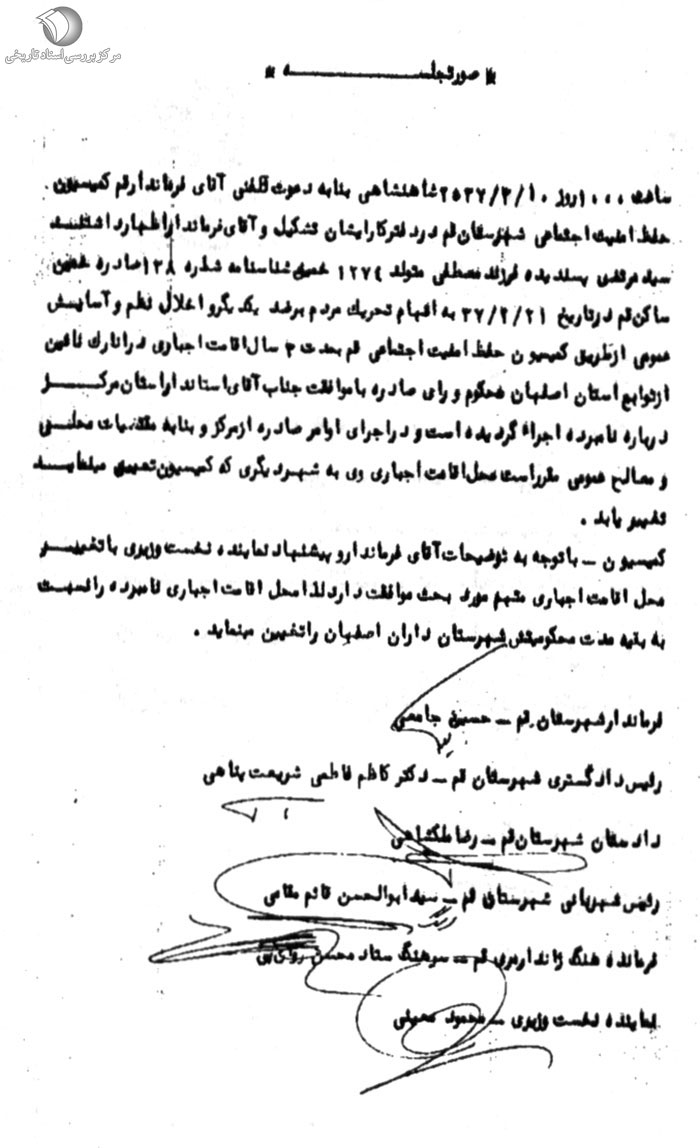 مرکز بررسی اسناد تاریخی
* صورتجلسـه *
ساعت ۱۰۰۰ روز ۲۵۳۷/۳/۱۰ شاهنشاهی بنابه دعوت قلنی آقای فرماندار قم کمیسیون
حفظ امنیت اجتماعی شهرستان قم در دفتر کار ایشان تشکیل و آقای فرماندار اظهار داشتند
سید مرتضی پسندیده فرزند مصطفی متولد ۱۲۷٤ خمین شناسنامه شماره ۱۲۸ صادره خمین
ساکن قم در تاریخ ۳۷/۲/۲۱ به اتهام تحریک مردم برضد یکدیگر و اخلال نظم و آسایش
عمومی از طریق کمیسیون حفظ امنیت اجتماعی قم بمدت ۳ سال اقامت اجباری در انارک نائین
از توابع استان اصفهان محکوم و رای صادره با موافقت جناب آقای استاندار استان مرکز
درباره نامبرده اجراء گردیده است و در اجرای اوامر صادره از مرکز و بنابه مقتضیات محلی
و مصالح عمومی مقرر است محل اقامت اجباری وی به شهر دیگری که کمیسیون تعیین مینماید
تغییر یابد .
کمیسیون ــ با توجه به توضیحات آقای فرماندار و پیشنهاد نماینده نخست وزیری با تغییر
محل اقامت اجباری متهم مورد بحث موافقت دارد لذا محل اقامت اجباری نامبرده را نسبت
به بقیه مدت محکومیتش شهرستان داران اصفهان را تعیین مینماید .
فرماندار شهرستان قم ــ حسین جامعی
رئیس دادگستری شهرستان قم ــ دکتر کاظم فاطمی شریعت پناهی
دادستان شهرستان قم ــ رضا ملکشاهی
رئیس شهربانی شهرستان قم ــ سید ابوالحسن قائم مقامی
فرمانده هنگ ژاندارمری قم ــ سرهنگ ستاد محسن
نماینده نخست وزیری ــ محمود معینی